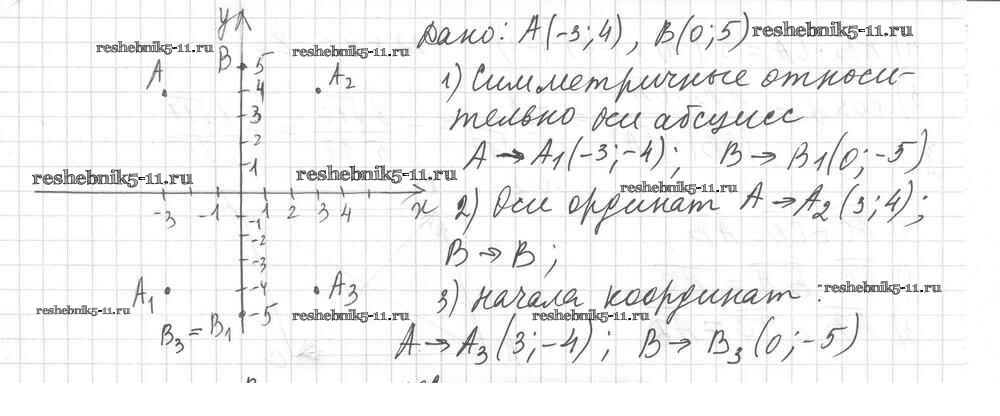 y
Дано: A(-3;4), B(0;5) reshebnik5-11.ru
reshebnik5-11.ru
reshebnik5-11.ru
B 5
A
A2
1) Симметричные относи-
4
тельно оси абсцисс
3
2
A → A1(-3;-4); B → B1(0;-5)
1
reshebnik5-11.ru
reshebnik5-11.ru
reshebnik5-11.ru
x
2) Оси ординат A → A2(3;4);
-3 -1 1 2 3 4
-1
-2
B → B;
-3
A1
-4
A3
3) начала координат:
reshebnik5-11.ru
reshebnik5-11.ru
-5
reshebnik5-11.ru
reshebnik5-11.ru
B3 = B1
A → A3(3;-4); B → B3(0;-5)